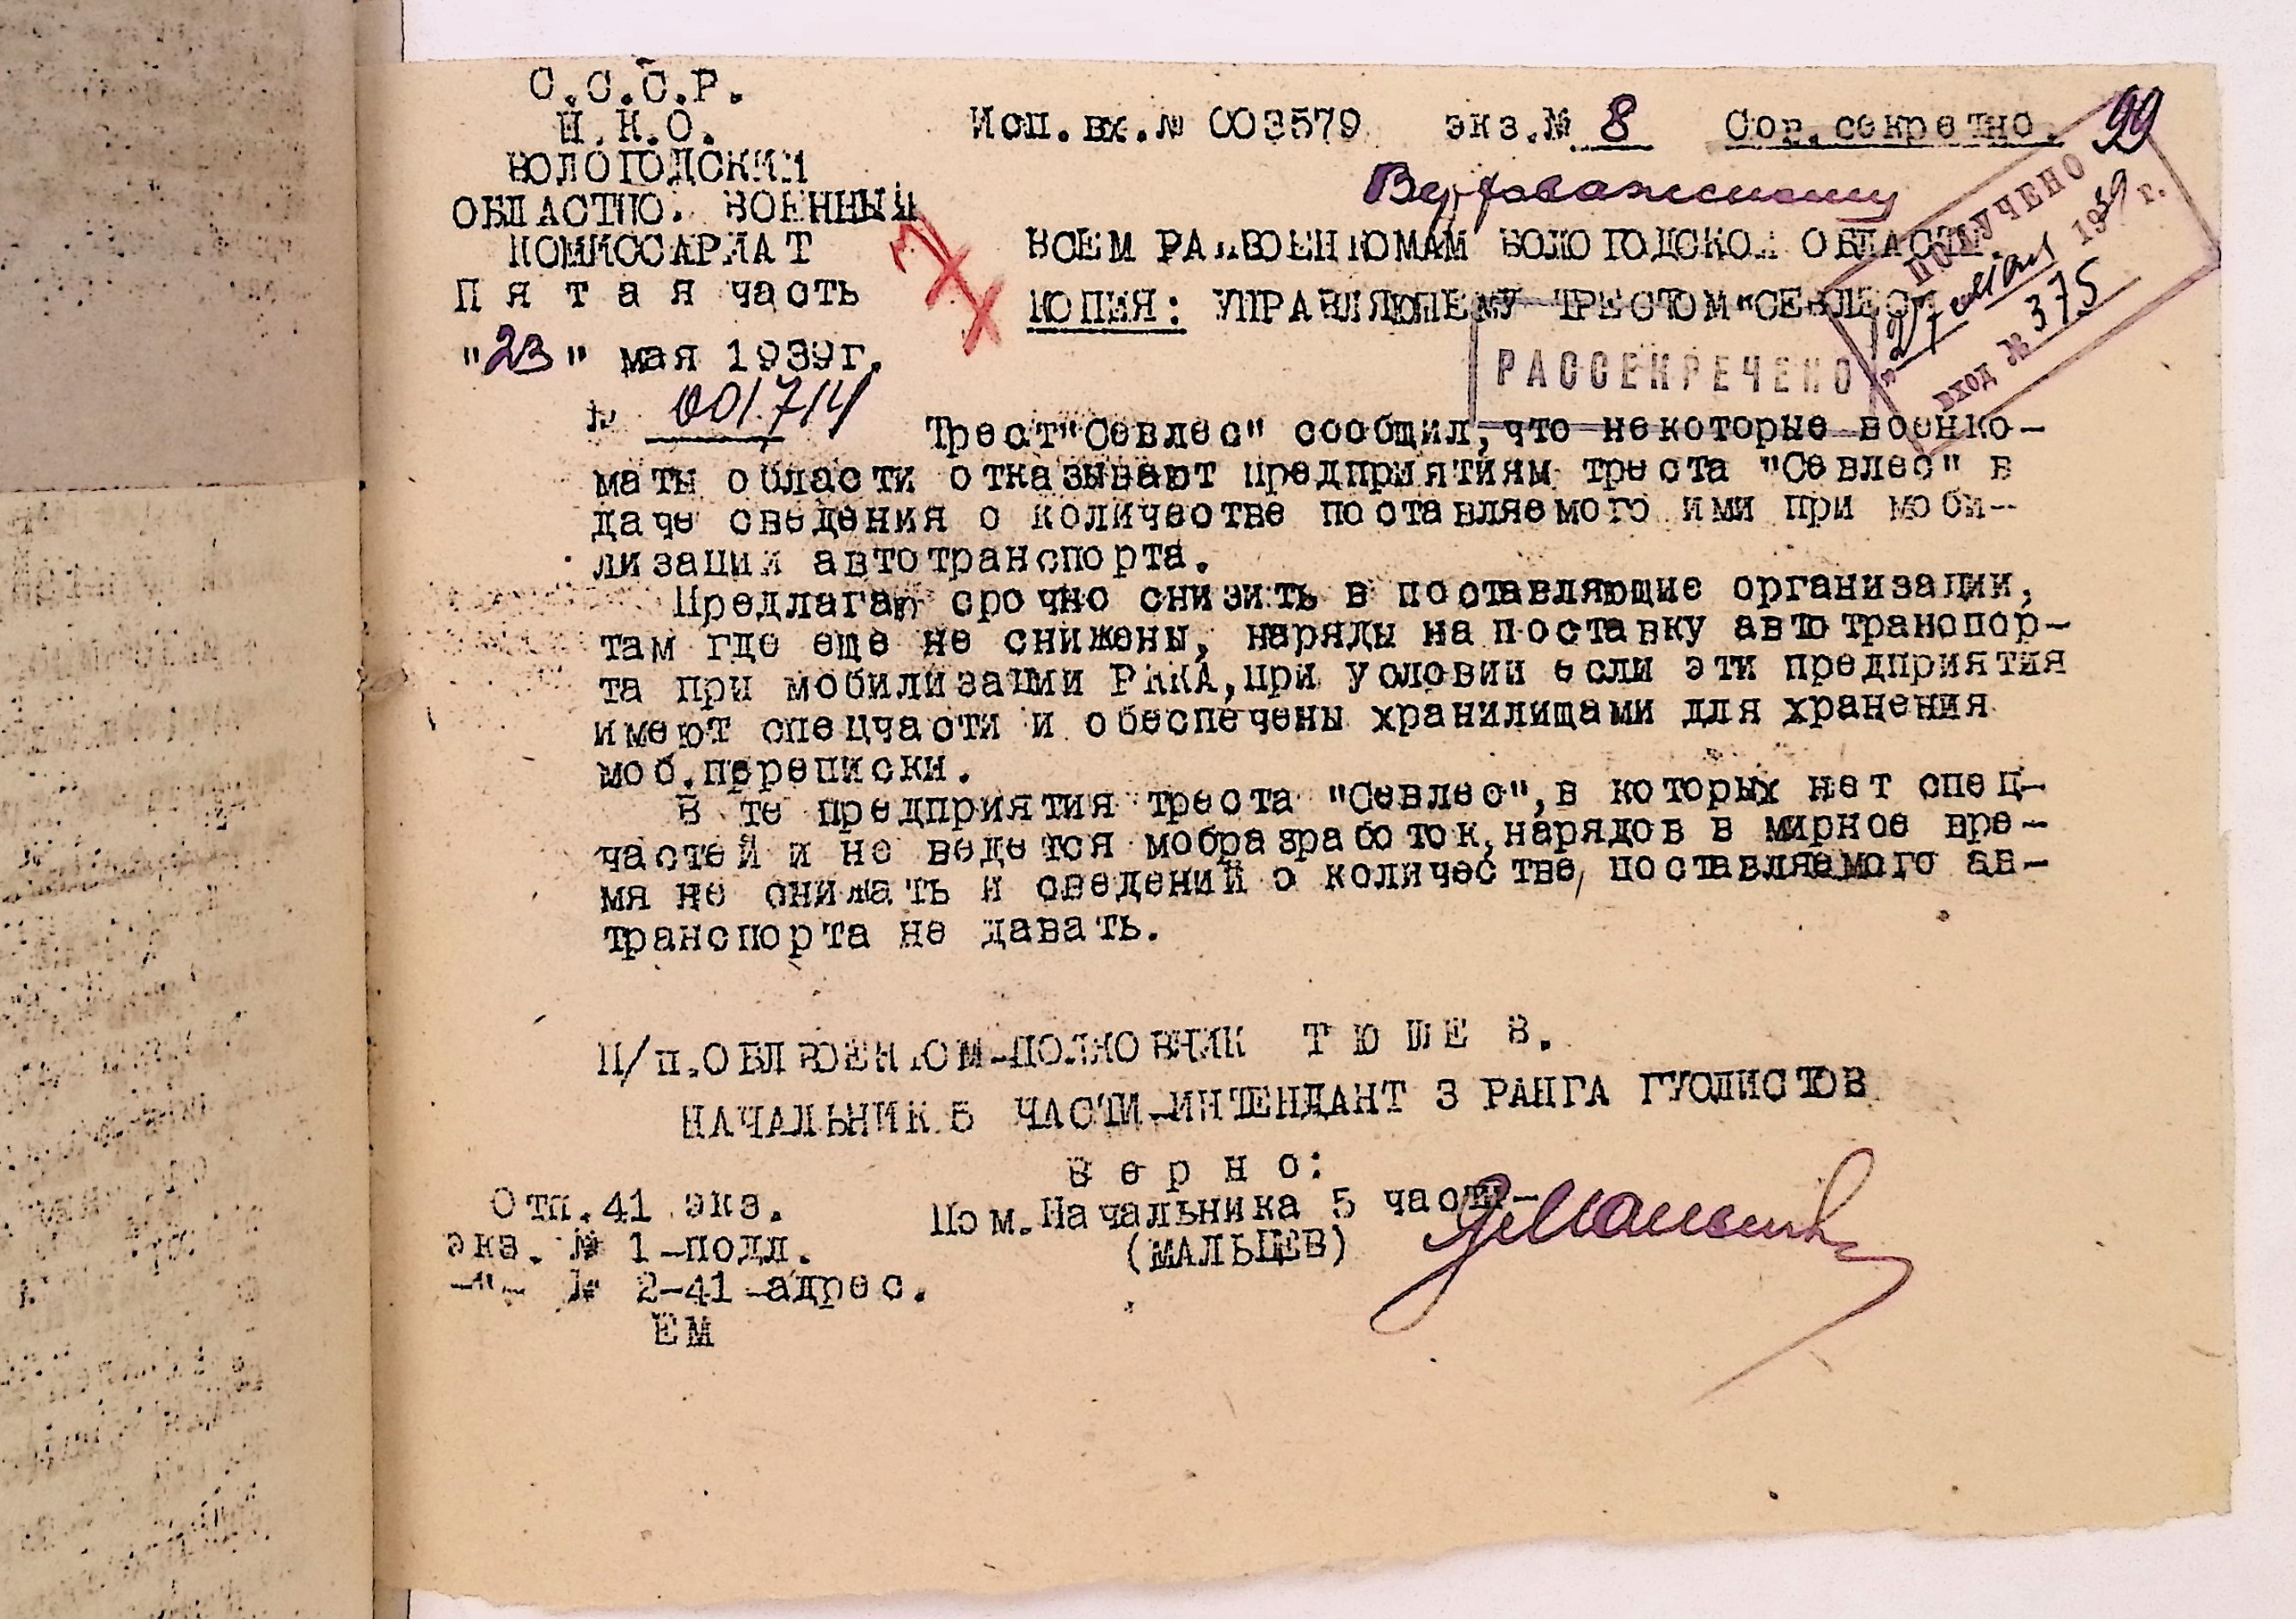 С.С.С.Р.
Н.К.О.
ВОЛОГОДСКИЙ
ОБЛАСТНО. ВОЕННЫЙ
КОМИССАРИАТ
Пятая часть
"23" мая 1939г.
№ 001714
Исп.вх.№ 003579 экз.№ 8 Сов.секретно. 99
Верховажскому
ВСЕМ РАЙВОЕНКОМАМ ВОЛОГОДСКОЙ ОБЛАСТИ.
КОПИЯ: УПРАВЛЯЮЩЕМУ ТРЕСТОМ "СЕВЛЕС"
ПОЛУЧЕНО
"27" мая 1939 г.
ВХОД № 375
РАССЕКРЕЧЕНО
Трест "Севлес" сообщил, что некоторые военко-
маты области отказывают предприятиям треста "Севлес" в
даче сведения о количестве поставляемого ими при моби-
лизации автотранспорта.
Предлагаю срочно снизить в поставляющие организации,
там где еще не снижены, наряды на поставку автотранспор-
та при мобилизации РККА, при условии если эти предприятия
имеют спецчасти и обеспечены хранилищами для хранения
моб.переписки.
В те предприятия треста "Севлес", в которых нет спец-
частей и не ведется мобразработок, нарядов в мирное вре-
мя не снижать и сведений о количестве, поставляемого ав-
транспорта не давать.
П/п.ОБЛВОЕНКОМ-ПОЛКОВНИК ТЮШЕВ.
НАЧАЛЬНИК 5 ЧАСТИ-ИНТЕНДАНТ 3 РАНГА ГУСЛИСТОВ
Верно:
Пом.Начальника 5 части-
(МАЛЬЦЕВ)
Отп.41 экз.
экз. № 1-подл.
-"- № 2-41-адрес.
ЕМ